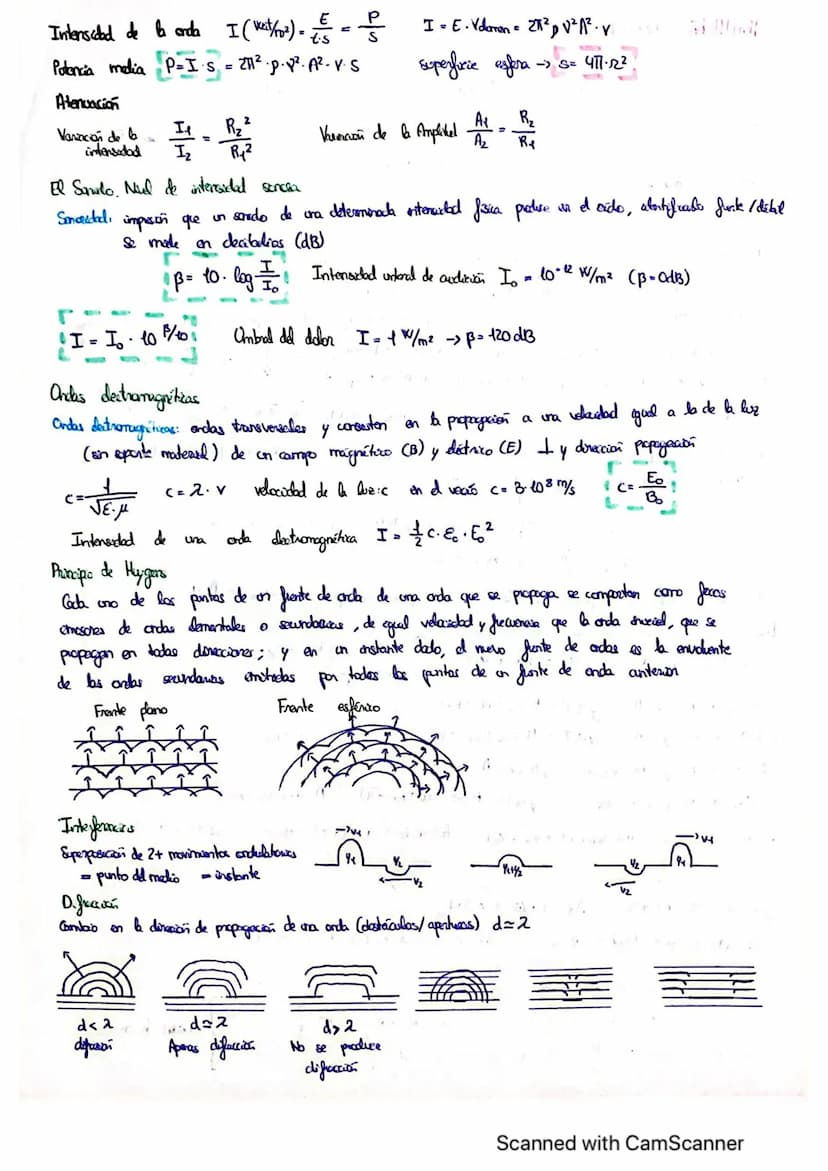 Intensidad de la onda I (Watt/m²) = E/t·s = P/S I = E · V = 2π² ρ ν² A² · v
Potencia media P = I · S = 2π² · ρ · ν² · A² · v · S superficie esfera → S = 4π · R²
Atenuación
Variación de la intensidad = I₁/I₂ = R₂²/R₁² Variación de la Amplitud A₁/A₂ = R₂/R₁
El Sonido. Nivel de intensidad sonora
Sonoridad: impresión que un sonido de una determinada intensidad física produce en el oído, fuerte/débil
Se mide en decibelios (dB)
β = 10 · log I/I₀ Intensidad umbral de audición I₀ = 10⁻¹² W/m² (β = 0dB)
I = I₀ · 10^β/10 Umbral del dolor I = 1 W/m² → β = 120 dB
Ondas electromagnéticas
Ondas electromagnéticas: ondas transversales y consisten en la propagación a una velocidad igual a la de la luz
(sin soporte material) de un campo magnético (B) y eléctrico (E) ⊥ y dirección propagación
c = 1/√ε·μ c = λ · ν velocidad de la luz: c en el vacío c = 3·10⁸ m/s c = E₀/B₀
Intensidad de una onda electromagnética I = 1/2 c · ε₀ · E₀²
Principio de Huygens
Cada uno de los puntos de un frente de onda de una onda que se propaga se comportan como focos
emisores de ondas elementales o secundarias, de igual velocidad y frecuencia que la onda inicial, que se
propagan en todas direcciones; y en un instante dado, el nuevo frente de ondas es la envolvente
de las ondas secundarias emitidas por todos los puntos de un frente de onda anterior
Frente plano Frente esférico
Interferencias
Superposición de 2+ movimientos ondulatorios
= punto del medio = instante
→v₁ y₁ y₂ ←v₂ y₁+y₂ →v₁ y₂ y₁ ←v₂
Difracción
Cambio en la dirección de propagación de una onda (obstáculos/aperturas) d≃λ
d < λ d ≃ λ d > λ
difusión Apenas difracción No se produce
difracción
Scanned with CamScanner